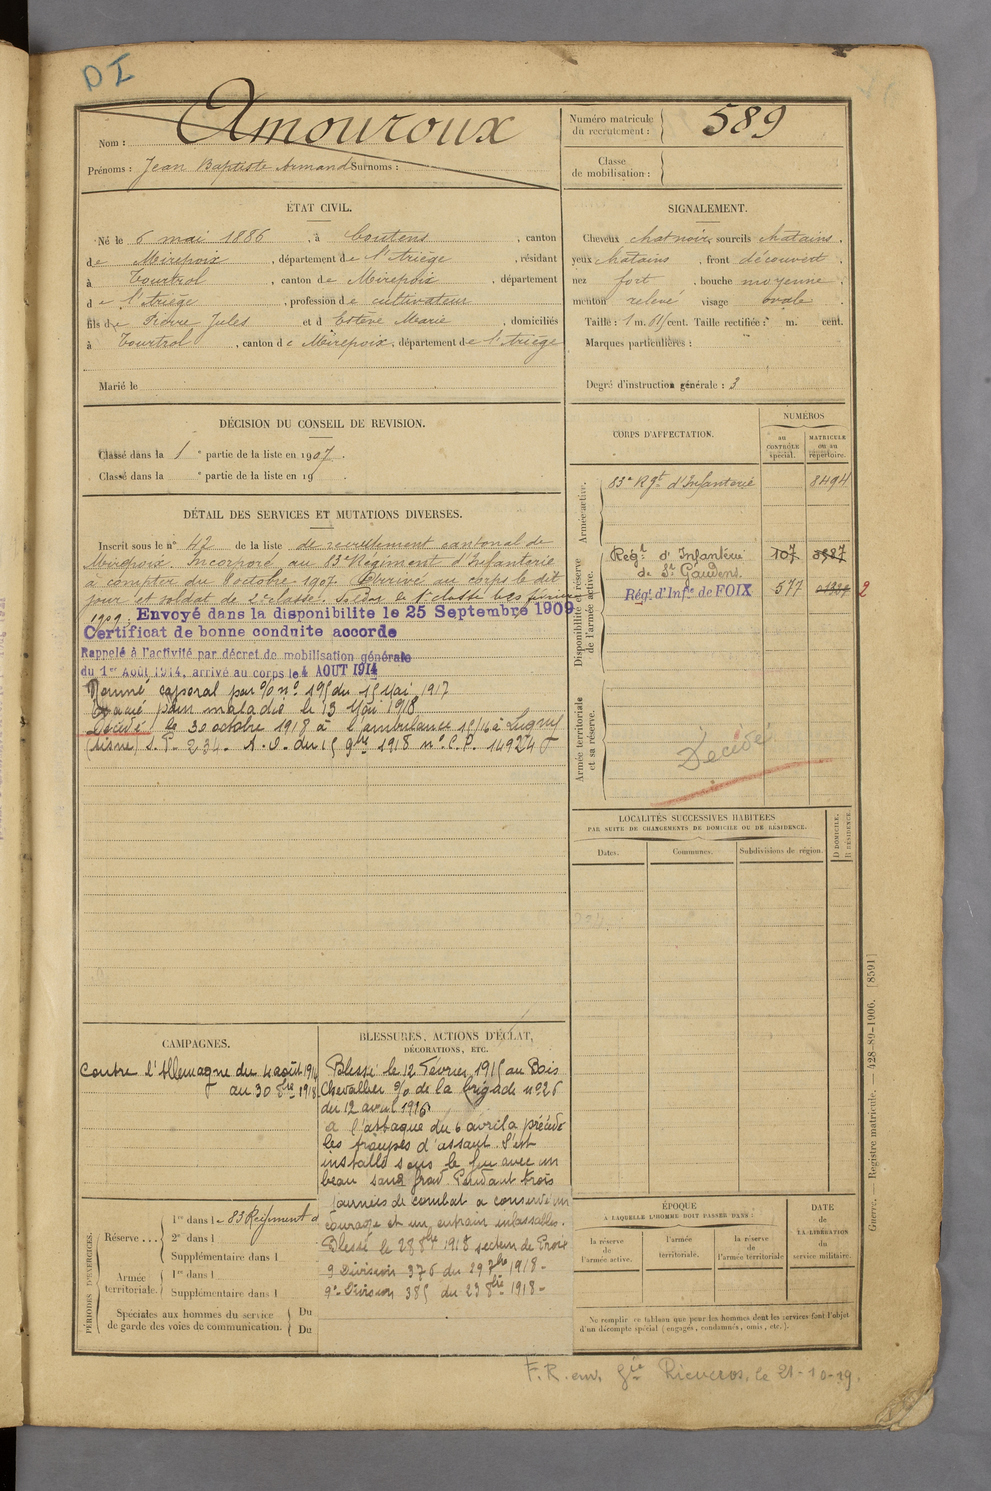 DI
Nom : Amouroux
Prénoms : Jean Baptiste Armand Surnoms :
Numéro matricule du recrutement : 589
Classe de mobilisation :
ÉTAT CIVIL.
Né le 6 mai 1886, à Coutens, canton
de Mirepoix, département de l'Ariège, résidant
à Tourtrol, canton de Mirepoix, département
de l'Ariège, profession de cultivateur
fils de Pierre Jules et d Estève Marie, domiciliés
à Tourtrol, canton de Mirepoix, département de l'Ariège
Marié le
SIGNALEMENT.
Cheveux chat noir, sourcils chatains.
yeux chatains, front découvert,
nez fort, bouche moyenne,
menton relevé visage ovale
Taille : 1 m. 61 cent. Taille rectifiée : m. cent.
Marques particulières :
Degré d'instruction générale : 3
DÉCISION DU CONSEIL DE REVISION.
Classé dans la 1 e partie de la liste en 1907.
Classé dans la e partie de la liste en 19
DÉTAIL DES SERVICES ET MUTATIONS DIVERSES.
Inscrit sous le n° 42 de la liste de recrutement cantonal de
Mirepoix. Incorporé au 83e Régiment d'Infanterie
à compter du 8 octobre 1907. Arrivé au corps le dit
jour et soldat de 2e classe. Soldat de 1e classe le 20 février
1909. Envoyé dans la disponibilite le 25 Septembre 1909
Certificat de bonne conduite accorde
Rappelé à l'activité par décret de mobilisation générale
du 1er Août 1914, arrivé au corps le 4 AOUT 1914
Nommé caporal par % n° 195 du 15 Mai 1917
Evacué pour maladie le 13 Mai 1918
Décédé le 30 octobre 1918 à l'ambulance 15/16 à Lugny
(Aisne) S.P. 234. A.O. du 15 9bre 1918 n° C.P. 14924
CORPS D'AFFECTATION.
NUMÉROS
au CONTRÔLE spécial.
MATRICULE ou au répertoire.
Armée active.
83e Rgt d'Infanterie 8494
Disponibilité et réserve de l'armée active.
Régt d'Infanterie 107
de St Gaudens.
Régt d'Infie de FOIX 577 2
Armée territoriale et sa réserve.
Décédé
LOCALITÉS SUCCESSIVES HABITÉES
PAR SUITE DE CHANGEMENTS DE DOMICILE OU DE RÉSIDENCE.
Dates. Communes. Subdivisions de région. D DOMICILE. R RÉSIDENCE.
CAMPAGNES.
Contre l'Allemagne du 4 août 1914
au 30 8bre 1918
BLESSURES, ACTIONS D'ÉCLAT,
DÉCORATIONS, ETC.
Blessé le 12 Février 1915 au Bois
Chevallier % de la brigade n° 26
du 12 avril 1916
a l'attaque du 6 avril a précédé
les troupes d'assaut. S'est
installé sous le feu avec un
beau sang froid. Pendant trois
journées de combat a conservé un
courage et un entrain inlassables.
Blessé le 28 8bre 1918 secteur de
9 Division 376 du 29 7bre 1918 -
9e Division 385 du 23 8bre 1918 -
PÉRIODES D'EXERCICES.
Réserve... 1re dans le 83 Régiment d
2e dans l
Supplémentaire dans l
Armée territoriale. 1re dans l
Supplémentaire dans l
Spéciales aux hommes du service Du
de garde des voies de communication. Du
ÉPOQUE
À LAQUELLE L'HOMME DOIT PASSER DANS :
la réserve de l'armée active.
l'armée territoriale.
la réserve de l'armée territoriale
DATE de LA LIBÉRATION du service militaire.
Ne remplir ce tableau que pour les hommes dont les services font l'objet
d'un décompte spécial (engagés, condamnés, omis, etc.).
Guerre. — Registre matricule. — 428-89-1906. [8591]
F.R. env. Gie Rieucros, le 21-10-19.